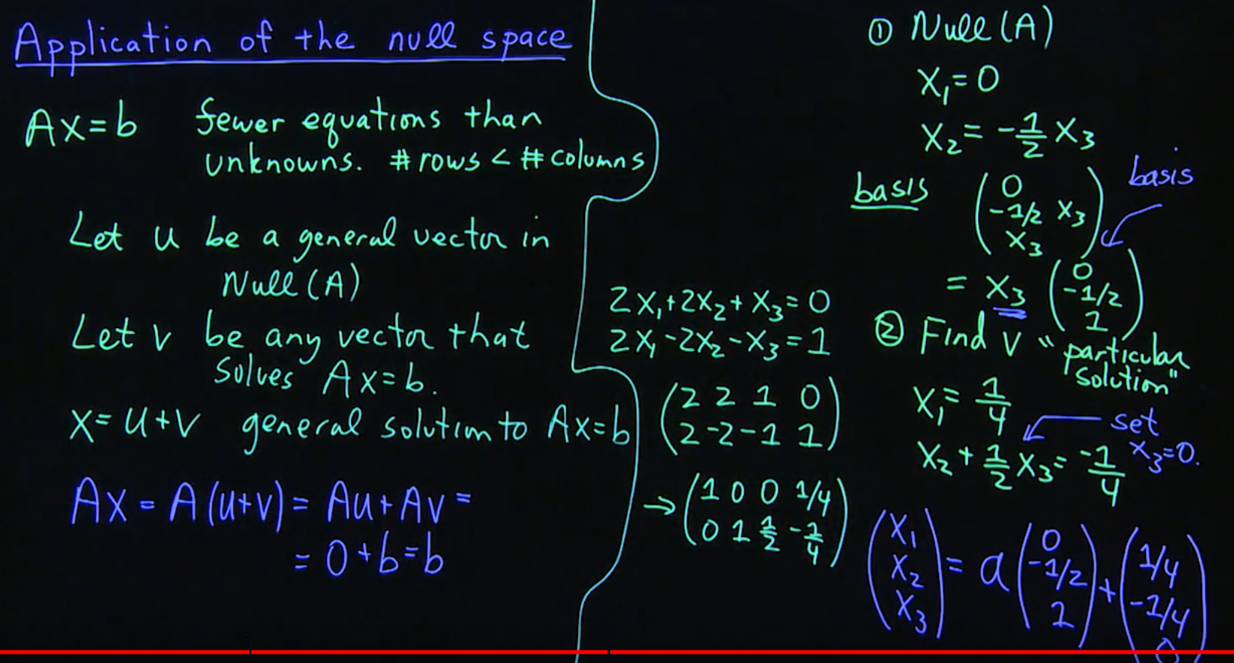 Application of the null space
Ax=b fewer equations than
unknowns. # rows < # columns
Let u be a general vector in
Null(A)
Let v be any vector that
solves Ax=b.
x=u+v general solution to Ax=b
Ax = A(u+v) = Au+Av =
= 0+b=b
2x₁+2x₂+x₃=0
2x₁-2x₂-x₃=1
(2 2 1 0)
(2 -2 -1 1)
→ (1 0 0 1/4)
(0 1 1/2 -1/4)
① Null(A)
x₁=0
x₂=-1/2 x₃
basis (0
-1/2 x₃
x₃)
basis
= x₃ (0
-1/2
1)
② Find v "particular
solution"
x₁=1/4
set
x₂+1/2 x₃=-1/4 x₃=0.
(x₁
x₂
x₃) = a (0
-1/2
1) + (1/4
-1/4
0